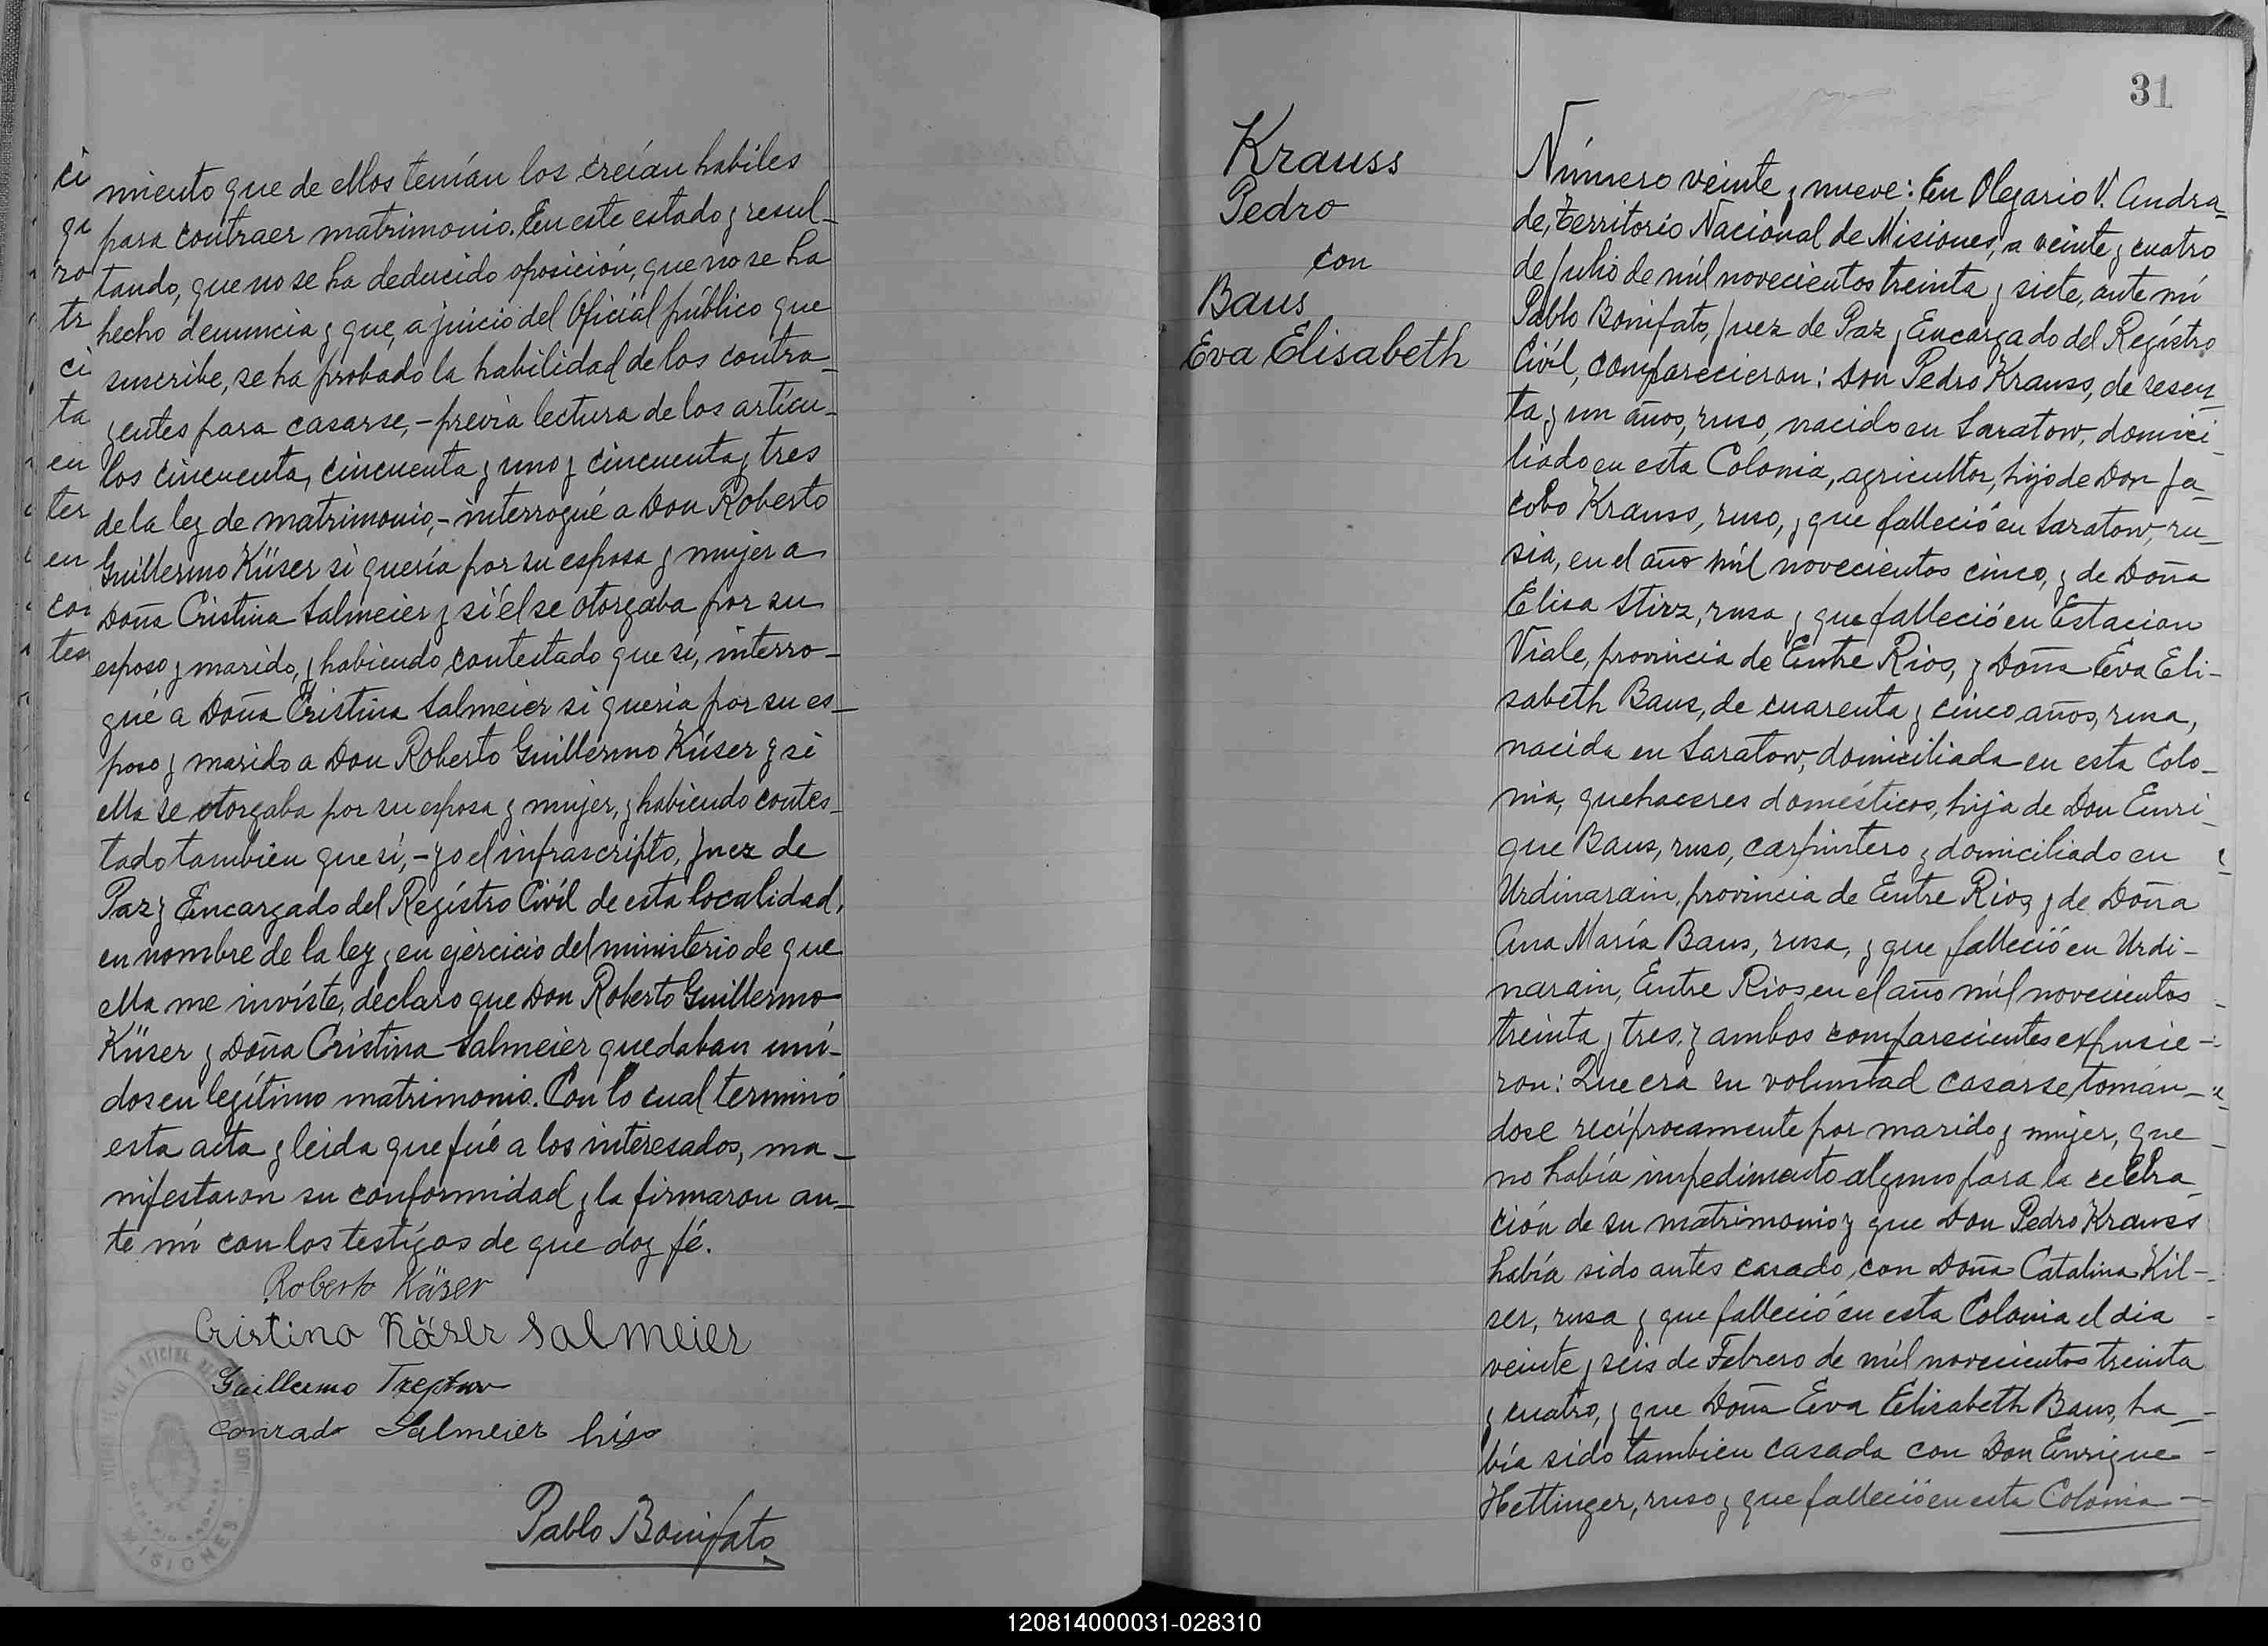 miento que de ellos tenían los creían habiles
para contraer matrimonio. En este estado y resul-
tando, que no se ha deducido oposición, que no se ha
hecho denuncia y que, a juicio del Oficial público que
suscribe, se ha probado la habilidad de los contra-
yentes para casarse, - previa lectura de los artícu-
los cincuenta, cincuenta y uno y cincuenta y tres
de la ley de matrimonio, - interrogué a Don Roberto
Guillermo Küser si quería por su esposa y mujer a
Doña Cristina Salmeier y si él se otorgaba por su
esposo y marido, y habiendo contestado que sí, interro-
gué a Doña Cristina Salmeier si quería por su es-
poso y marido a Don Roberto Guillermo Küser y si
ella se otorgaba por su esposa y mujer, y habiendo contes-
tado tambien que sí, - yo el infrascripto, Juez de
Paz y Encargado del Regístro Civíl de esta localidad,
en nombre de la ley y en ejercicio del ministerio de que
ella me invíste, declaro que Don Roberto Guillermo
Küser y Doña Cristina Salmeier quedaban uni-
dos en legítimo matrimonio. Con lo cual terminó
esta acta y leida que fué a los interesados, ma-
nifestaron su conformidad y la firmaron an-
te mí con los testígos de que doy fé.
Roberto Käser
Cristina Käser Salmeier
Guillermo Treptow
Conrado Salmeier hijo
Pablo Bonifato
MISIONES
ci
ga
ro
tr
ci
ta
en
ter
en
con
tes
31
Krauss
Pedro
con
Baus
Eva Elisabeth
Número veinte y nueve: En Olegario V. Andra-
de, Territorio Nacional de Misiones, a veinte y cuatro
de Julio de mil novecientos treinta y siete, ante mí
Pablo Bonifato, Juez de Paz y Encargado del Regístro
Civíl, comparecieron: Don Pedro Krauss, de sesen-
ta y un años, ruso, nacido en Saratow, domici-
liado en esta Colonia, agricultor, hijo de Don Ja-
cobo Krauss, ruso, y que falleció en Saratow, ru-
sia, en el año mil novecientos cinco, y de Doña
Elisa Stirz, rusa y que falleció en Estacion
Viale, provincia de Entre Rios, y Doña Eva Eli-
sabeth Baus, de cuarenta y cinco años, rusa,
nacida en Saratow, domiciliada en esta Colo-
nia, quehaceres domésticos, hija de Don Enri-
que Baus, ruso, carpintero y domiciliado en
Urdinarain, provincia de Entre Rios, y de Doña
Ana María Baus, rusa, y que falleció en Urdi-
narain, Entre Rios en el año mil novecientos
treinta y tres. y ambos comparecientes expusie-
ron: Que era su voluntad casarse, tomán-
dose recíprocamente por marido y mujer, que
no había impedimento alguno para la celebra-
ción de su matrimonio y que Don Pedro Krauss
había sido antes casado con Doña Catalina Kil-
ser, rusa y que falleció en esta Colonia el dia
veinte y seis de Febrero de mil novecientos treinta
y cuatro, y que Doña Eva Elisabeth Baus, ha-
bía sido tambien casada con Don Enrique
Hettinger, ruso y que falleció en esta Colonia
120814000031-028310